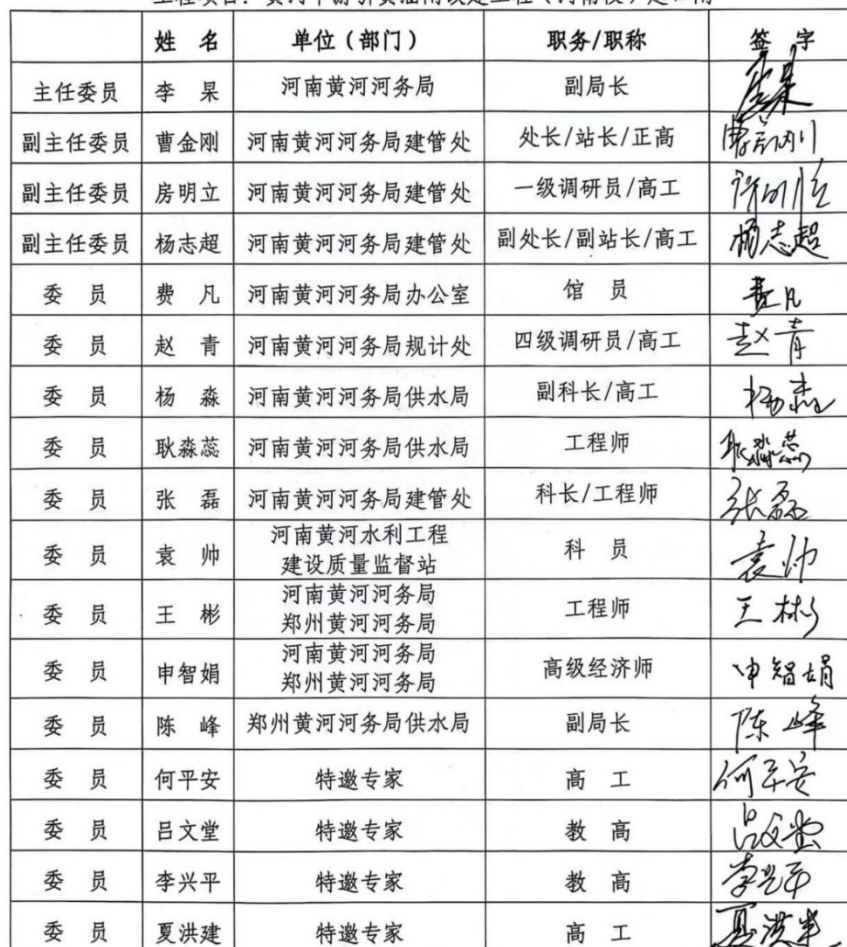 工程项目：黄河下游引黄涵闸改建工程（河南段）赵口闸
姓 名 单位（部门） 职务/职称 签 字
主任委员 李 杲 河南黄河河务局 副局长 李杲
副主任委员 曹金刚 河南黄河河务局建管处 处长/站长/正高 曹金刚
副主任委员 房明立 河南黄河河务局建管处 一级调研员/高工
副主任委员 杨志超 河南黄河河务局建管处 副处长/副站长/高工 杨志超
委 员 费 凡 河南黄河河务局办公室 馆 员 费凡
委 员 赵 青 河南黄河河务局规计处 四级调研员/高工 赵青
委 员 杨 淼 河南黄河河务局供水局 副科长/高工 杨淼
委 员 耿淼蕊 河南黄河河务局供水局 工程师 耿淼蕊
委 员 张 磊 河南黄河河务局建管处 科长/工程师 张磊
委 员 袁 帅 河南黄河水利工程建设质量监督站 科 员 袁帅
委 员 王 彬 河南黄河河务局郑州黄河河务局 工程师 王彬
委 员 申智娟 河南黄河河务局郑州黄河河务局 高级经济师 申智娟
委 员 陈 峰 郑州黄河河务局供水局 副局长 陈峰
委 员 何平安 特邀专家 高 工 何平安
委 员 吕文堂 特邀专家 教 高 吕文堂
委 员 李兴平 特邀专家 教 高 李兴平
委 员 夏洪建 特邀专家 高 工 夏洪建